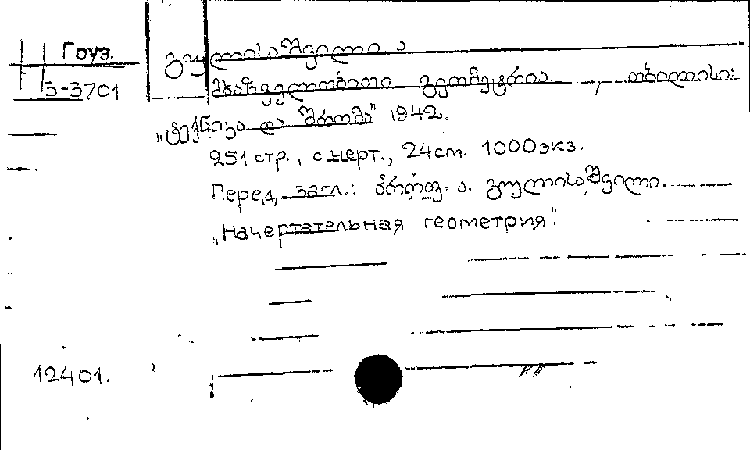 Груз.
3-3701
გულისაშვილი ა
მხაზველობითი გეომეტრია, თბილისი:
„ტექნიკა და შრომა" 1942.
251 стр., с черт., 24 см. 1000 экз.
Перед загл.: პროფ. ა. გულისაშვილი.
„Начертательная геометрия".
12401.